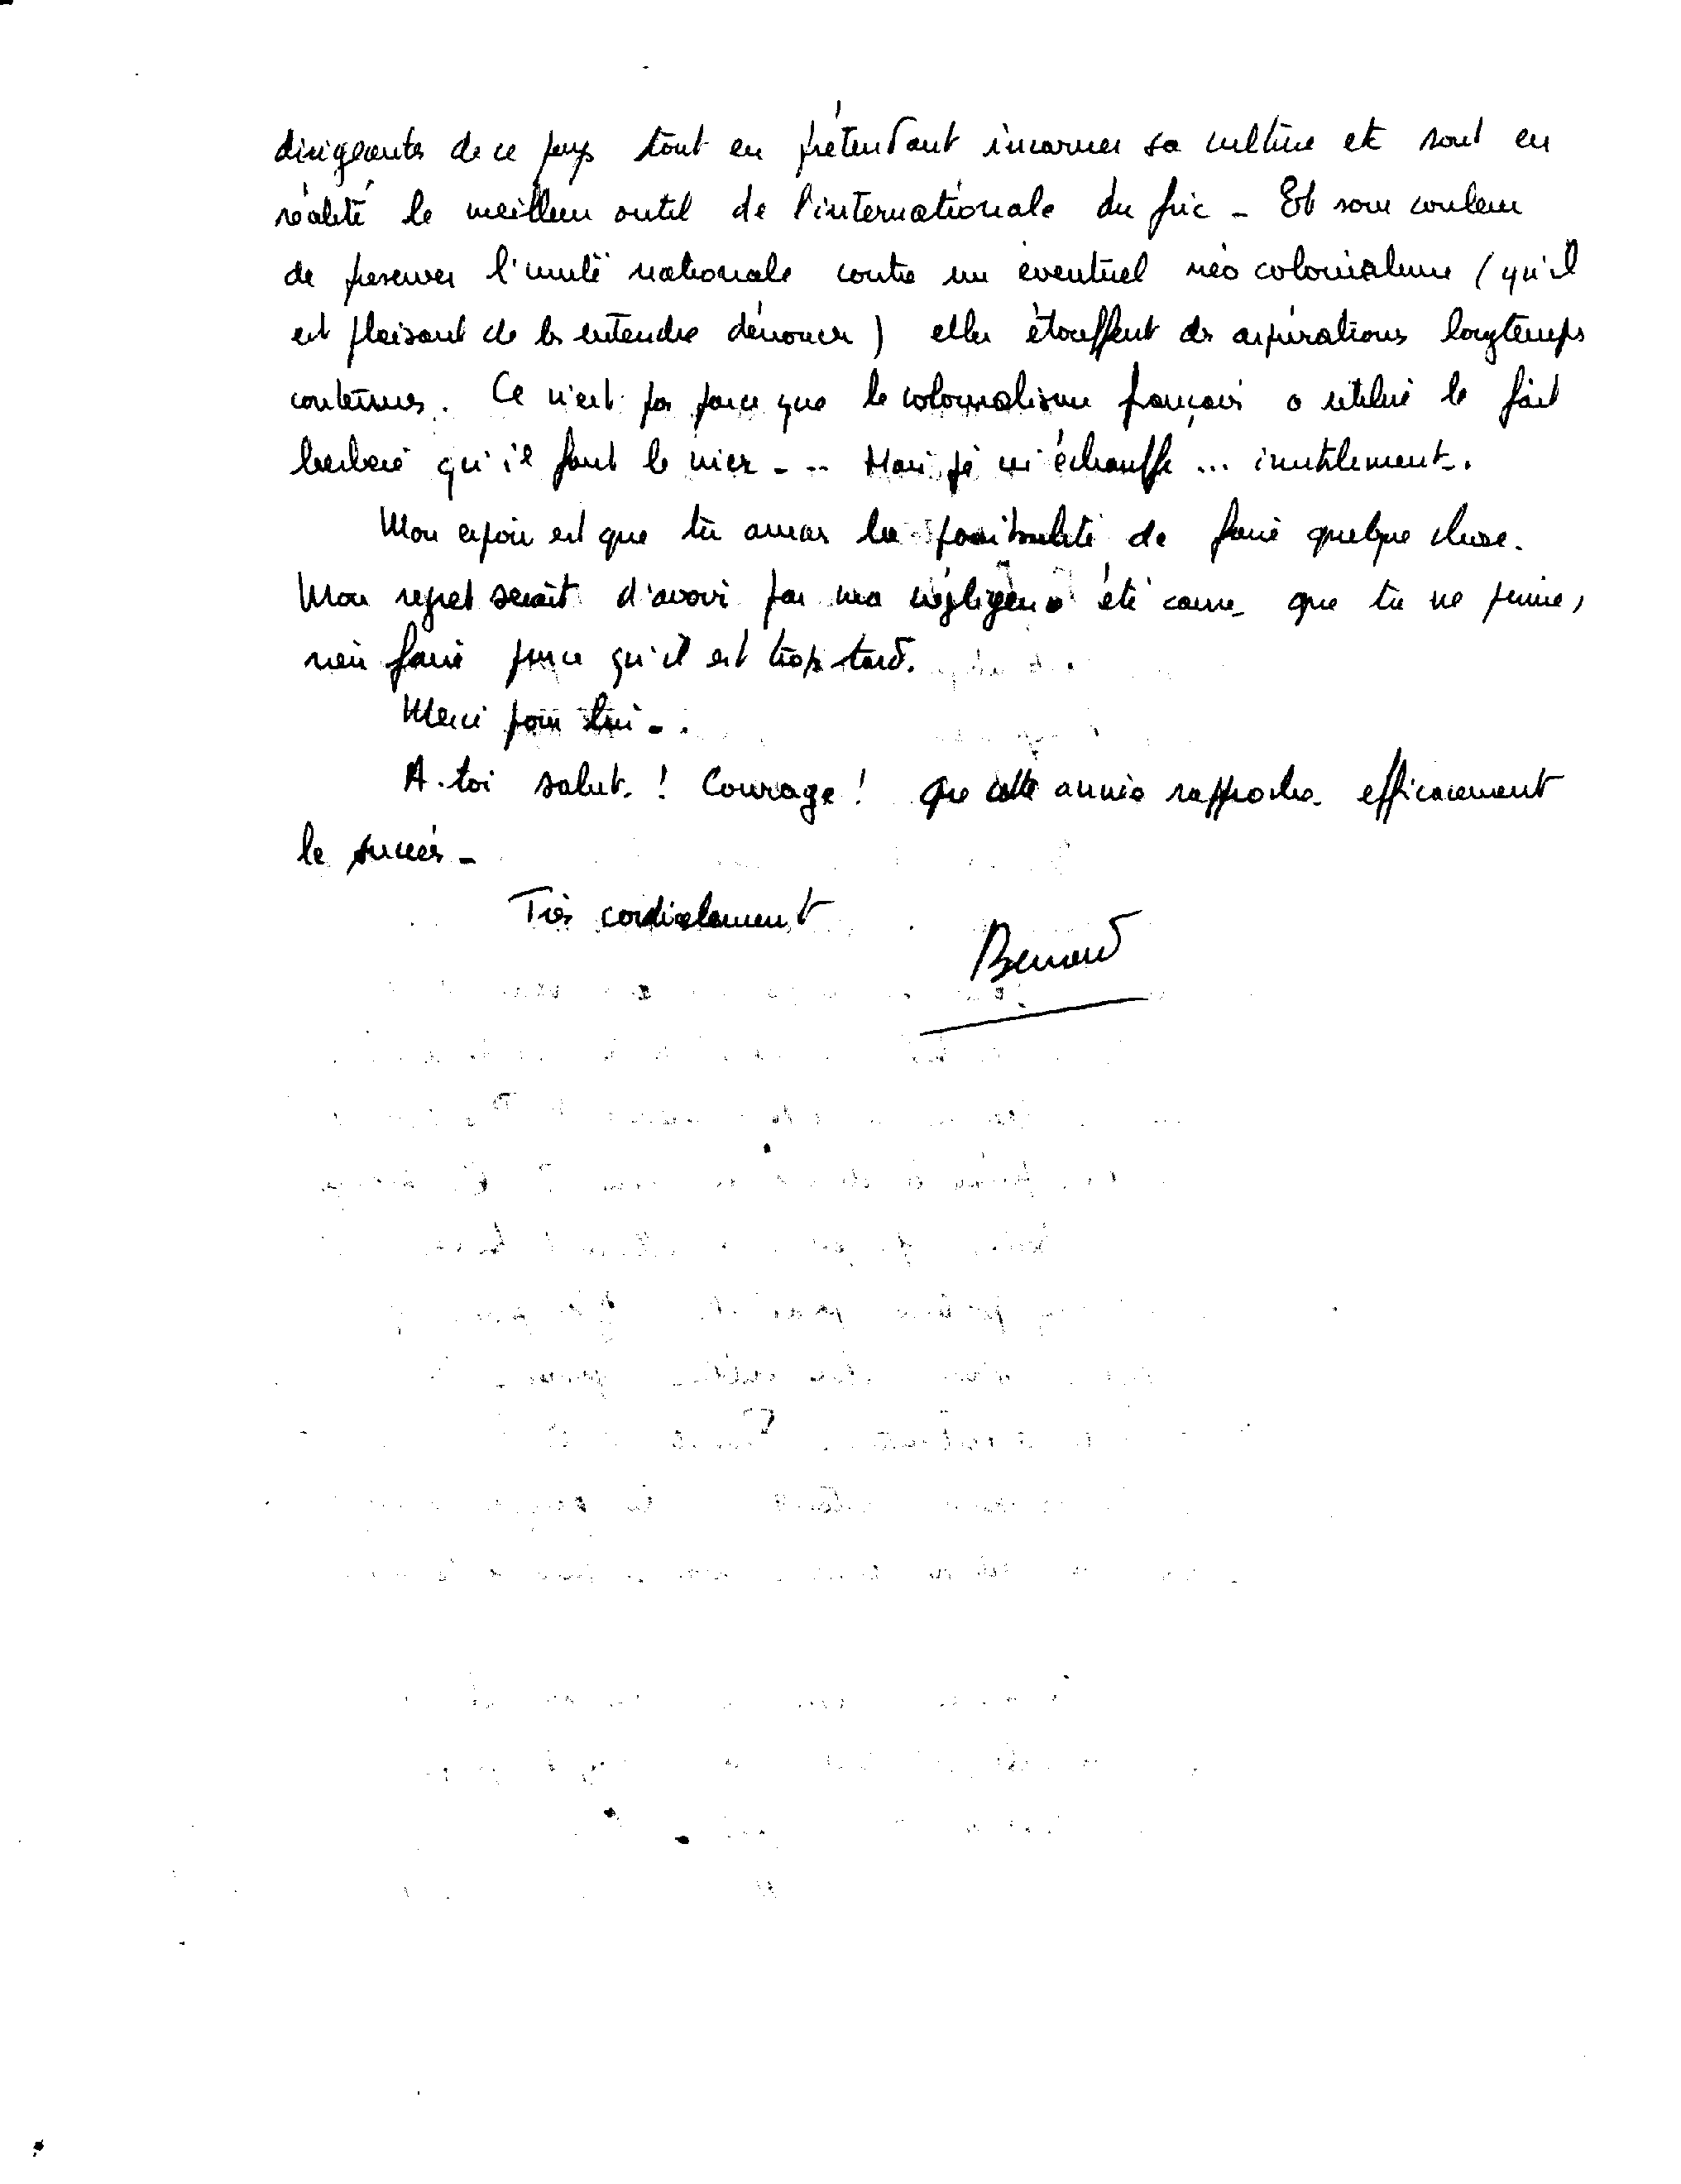 dirigeantes de ce pays tout en prétendant incarner sa culture et sont en
réalité le meilleur outil de l'internationale du fric - Et sous couleur
de preserver l'unité nationale contre un éventuel néo colonialisme (qu'il
est plaisant de les entendre dénoncer) elles étouffent des aspirations longtemps
contenues. Ce n'est pas parce que le colonialisme français a utilisé le fait
berbère qu'il faut le nier - .. Mais je m'échauffe ... inutilement.
Mon espoir est que tu auras la possibilité de faire quelque chose.
Mon regret serait d'avoir par ma négligence été cause que tu ne puisses
rien faire parce qu'il est trop tard.
Merci pour lui - .
A toi salut ! Courage ! Que cette année rapproche efficacement
le succès -
Très cordialement
Bernard